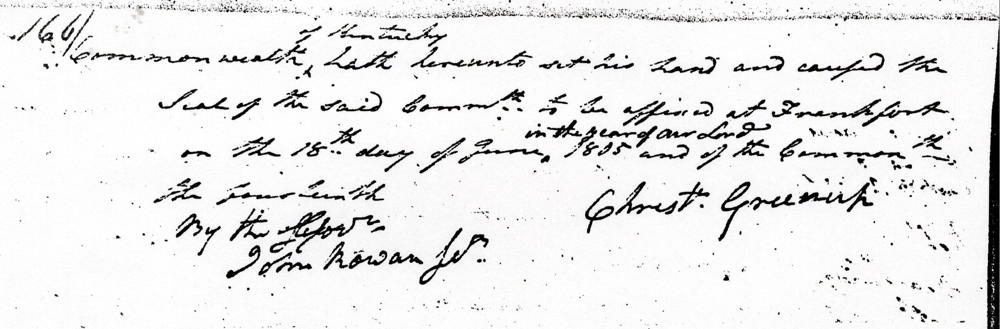 166/
of Kentucky
Commonwealth ^ hath hereunto set his hand and caused the
Seal of the said Commth. to be affixed at Frankfort
in the year of our Lord
on the 18th day of June ^ 1805 and of the Commonth
the fourteenth
Christ. Greenup
By the Govr.
John Rowan Sec.